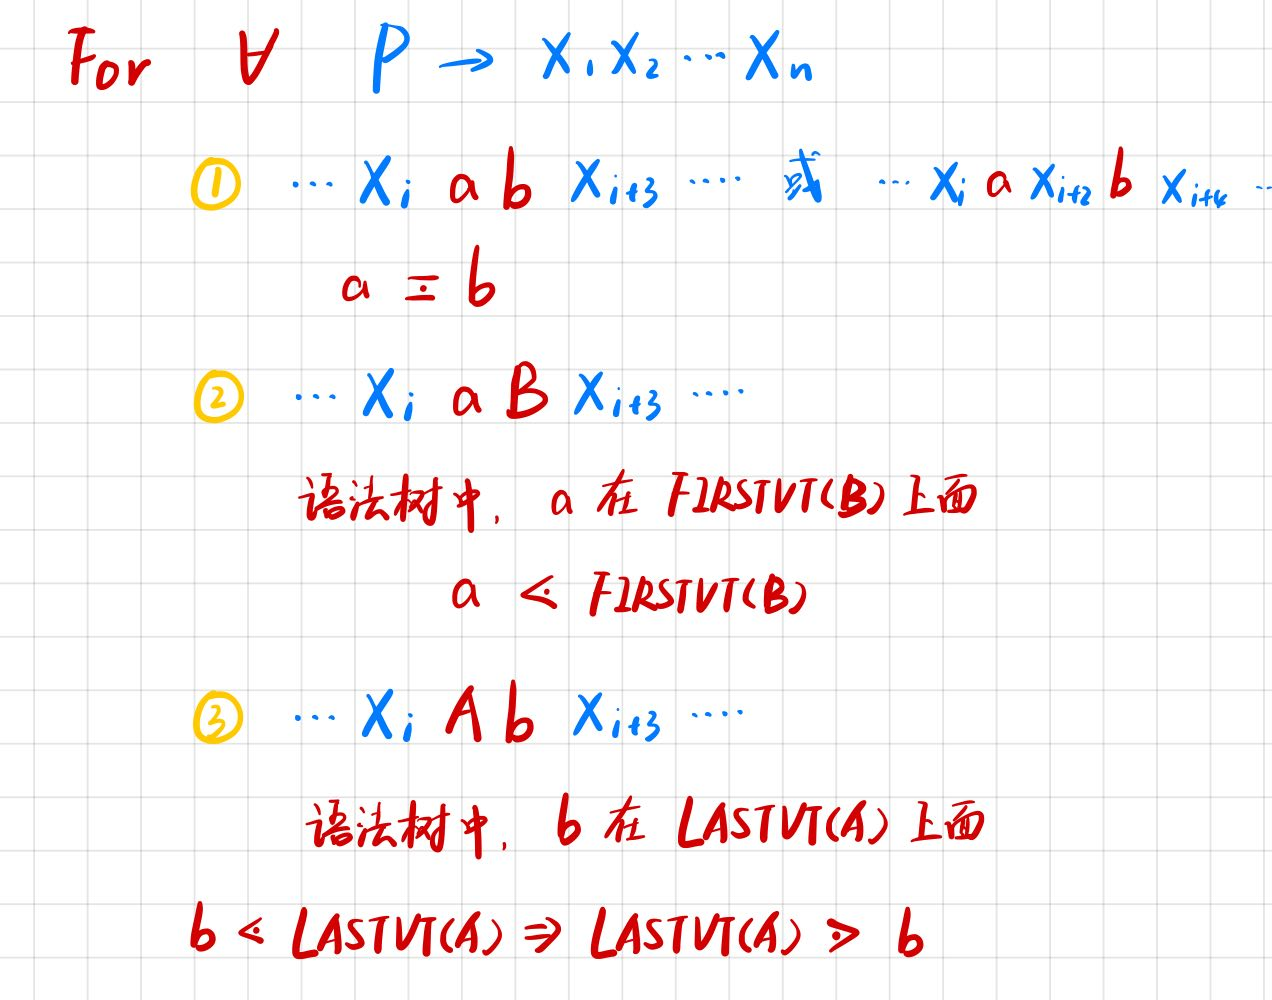 For ∀ P → X₁X₂ ⋯ Xₙ
① ⋯ Xᵢ a b Xᵢ₊₃ ⋯⋯ 或 ⋯ Xᵢ a Xᵢ₊₂ b Xᵢ₊₄ ⋯
a ≐ b
② ⋯ Xᵢ a B Xᵢ₊₃ ⋯⋯
语法树中, a 在 FIRSTVT(B) 上面
a ⋖ FIRSTVT(B)
③ ⋯ Xᵢ A b Xᵢ₊₃ ⋯⋯
语法树中, b 在 LASTVT(A) 上面
b ⋖ LASTVT(A) ⇒ LASTVT(A) ⋗ b